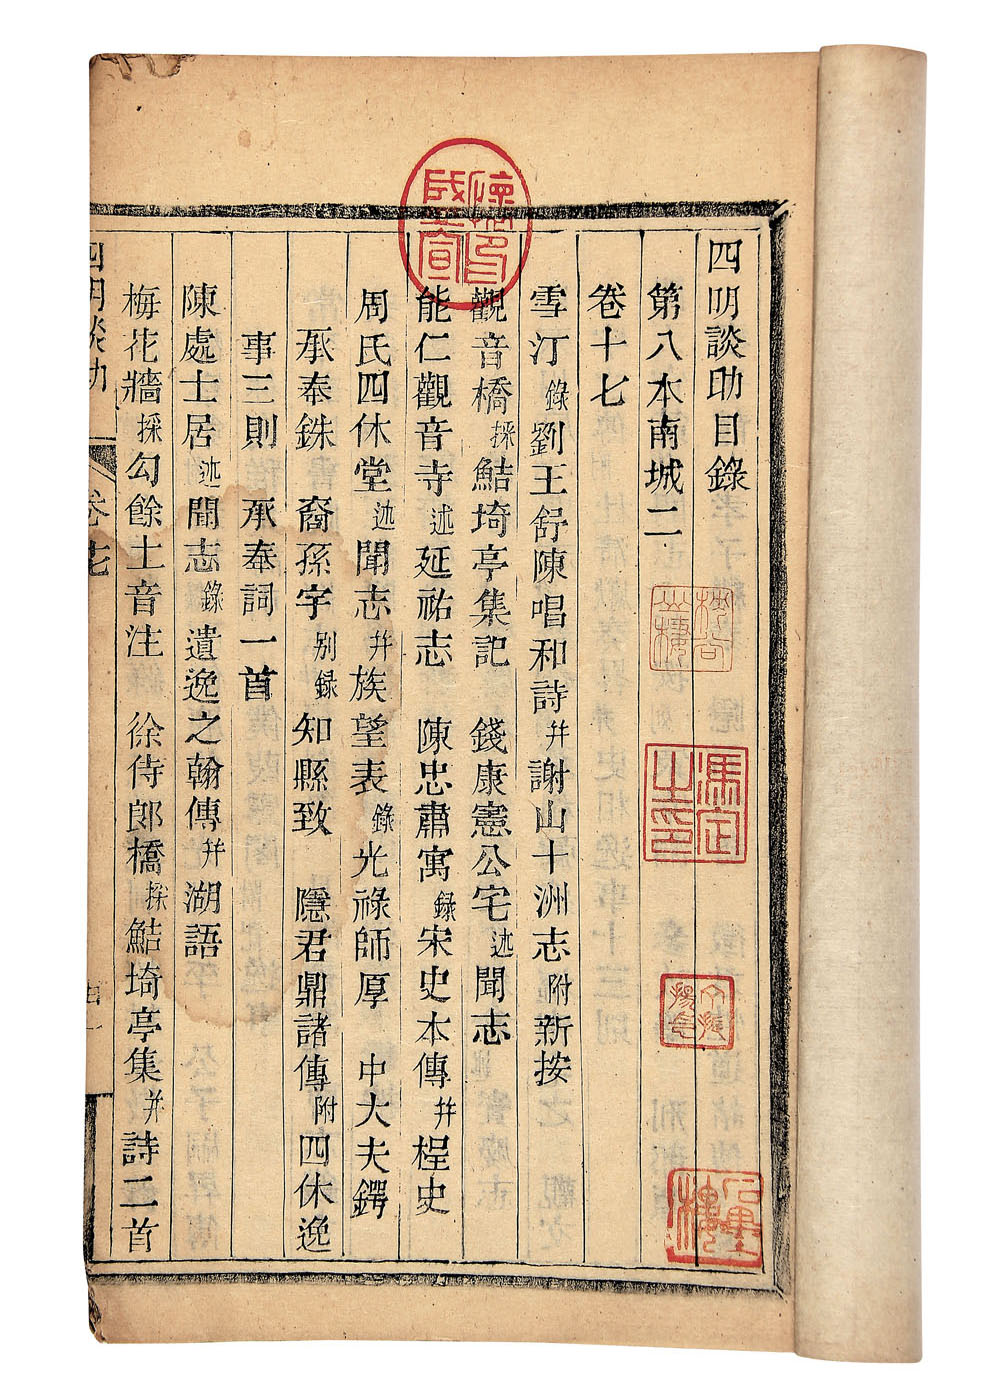 四明談助目錄
第八本南城二
卷十七
雪汀錄劉王舒陳唱和詩幷謝山十洲志附新按
觀音橋採鮚埼亭集記 錢康憲公宅述聞志
能仁觀音寺述延祐志 陳忠肅寓録宋史本傳幷桯史
周氏四休堂述聞志幷族望表錄光祿師厚 中大夫鍔
承奉銖 裔孫宇别録知縣致 隱君鼎諸傳附四休逸
事三則 承奉詞一首
陳處士居述聞志錄遺逸之翰傳幷湖語
梅花牆採勾餘土音注 徐侍郎橋採鮚埼亭集幷詩二首
四明談助
卷十七